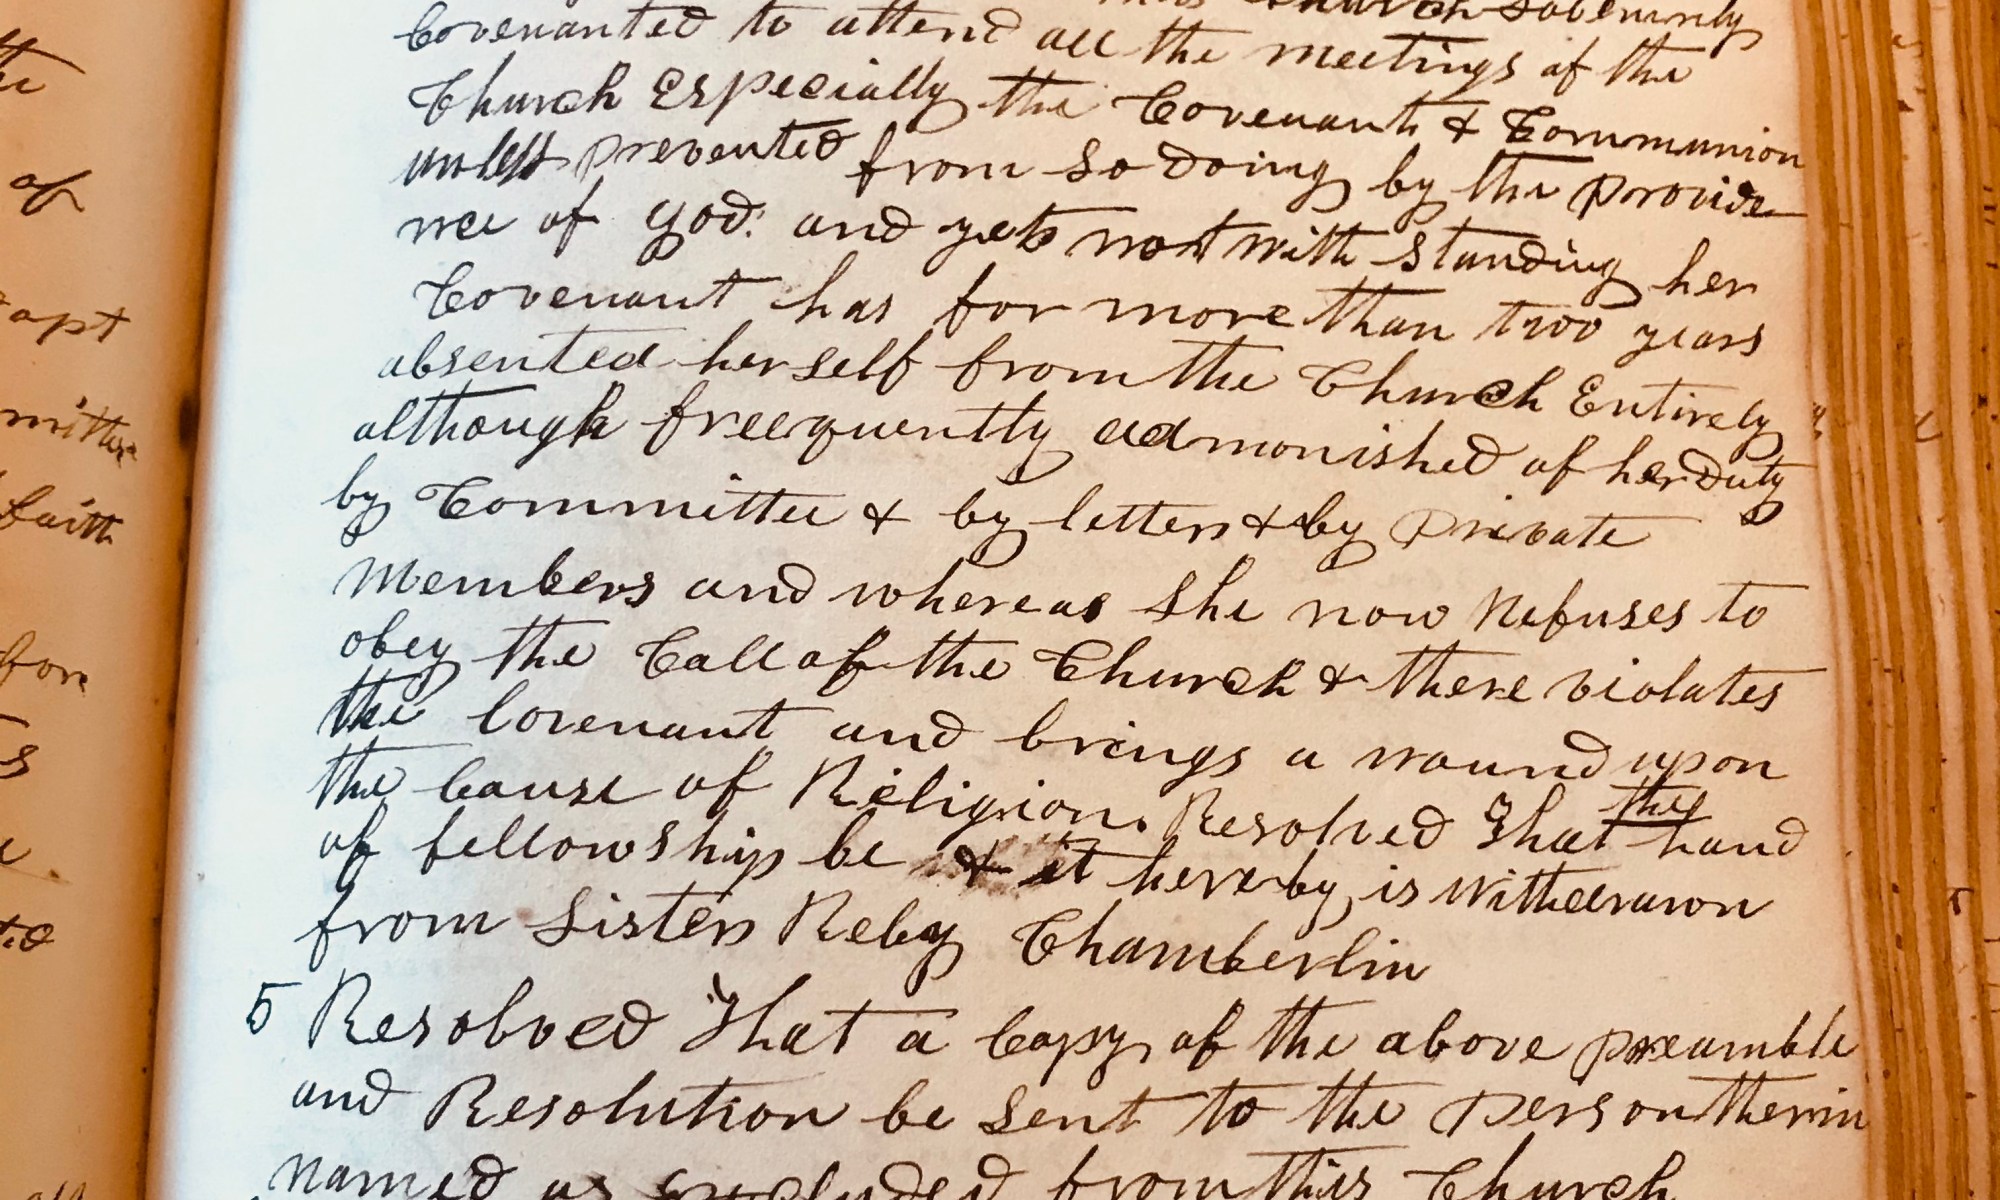 Church Solemnly
Covenanted to attend all the meetings of the
Church Especially the Covenant & Communion
unless prevented from so doing by the provide
nce of god. and yet not with standing her
Covenant has for more than two years
absented herself from the Church Entirely
although freequently admonished of her Duty
by Committee & by letters & by private
Members and whereas She now Refuses to
obey the Call of the Church & there violates
the Covenant and brings a wound upon
the Cause of Religion. Resolved That the hand
of fellowship be & it hereby is Withdrawn
from Sister Reby Chamberlin
5 Resolved That a Copy of the above preamble
and Resolution be Sent to the Person therin
Named as Excluded from this Church
the
of
apt
mittee
faith
for